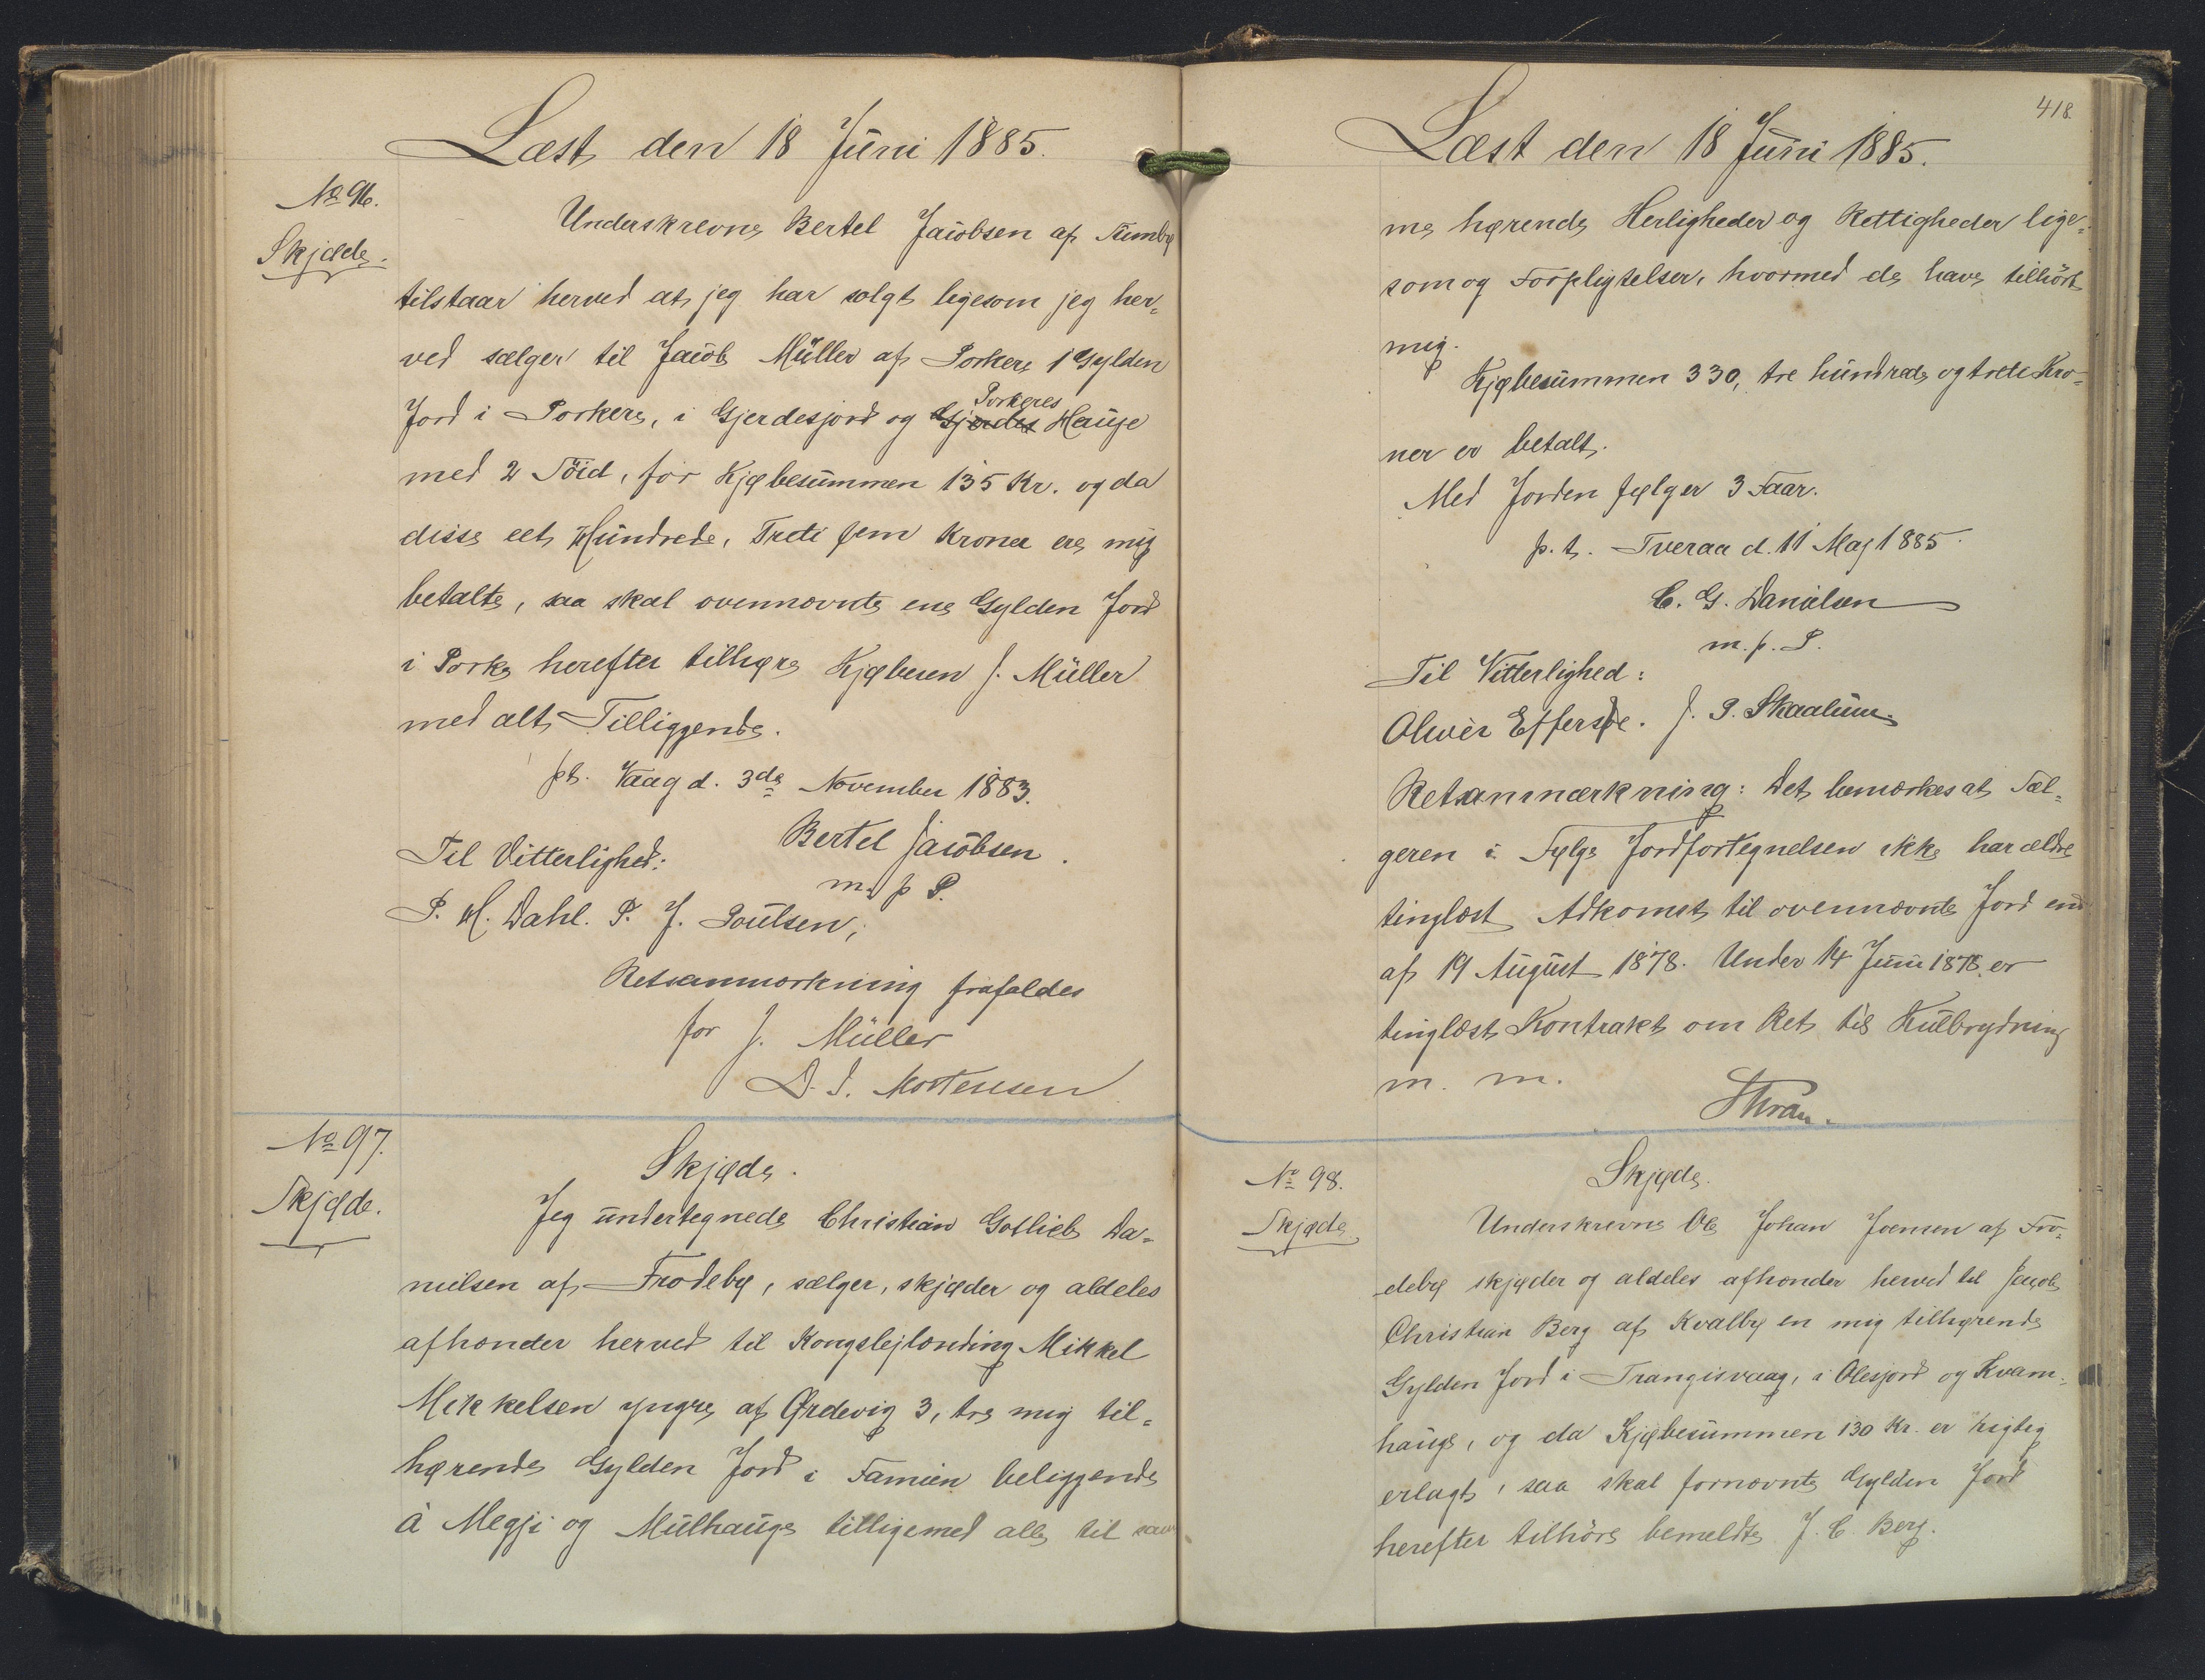 Læst den 18 Juni 1885.
No 96.
Skjøde.
Underskrevne Bertel Jacobsen af Sumbø
tilstaar herved at jeg har solgt ligesom jeg her=
ved sælger til Jacob Müller af Porkere 1 Gylden
Jord i Porkere, i Gjerdesjord og Gjerdes Porkeres Hauge
med 2 Söid, for Kjøbesummen 135 Kr. og da
disse eet Hundrede, Treti fem Kroner ere mig
betalte, saa skal ovennævnte ene Gylden Jord
i Porke herefter tilhøre Kjøberen J. Müller
med alt Tilliggende.
pt. Vaag d. 3de November 1883.
Bertel Jacobsen.
m. p P.
Til Vitterlighed:
P. M. Dahl. P. J. Poulsen,
Retsanmærkning frafaldes
for J. Müller
D. J. Mortensen
No 97.
Skjøde.
Skjøde.
Jeg undertegnede Christian Gotlieb Da=
nielsen af Frodebø, sælger, skjøder og aldeles
afhænder herved til Kongslejlænding Mikkel
Mikkelsen yngre af Ørdevig 3, tre mig til=
hørende Gylden Jord i Famien beliggende
à Megji og Mulhauge tilligemed alle til sam
418
Læst den 18 Juni 1885.
me hørende Herligheder og Rettigheder lige=
som og Forpligtelser, hvormed de have tilhört
mig.
Kjøbesummen 330, tre hundrede og treti Kro=
ner er betalt.
Med Jorden følger 3 Faar.
p. t. Tveraa d. 11 Maj 1885.
C. G. Danielsen
m. p. P.
Til Vitterlighed:
Oliver Effersøe. J. P. Skaalum.
Retsanmærkning: Det bemærkes at Sæl=
geren i Følge Jordfortegnelsen ikke har ældre
tinglæst Adkomst til ovennævnte Jord end
af 19 August 1878. Under 14 Juni 1878 er
tinglæst Kontrakt om Ret til Kulbrydning
m. m.
No 98.
Skjøde.
Skjøde.
Underskrevne Ole Johan Joensen af Fro=
debø skjøder og aldeles afhænder herved til Jacob
Christian Berg af Kvalbø en mig tilhørende
Gylden Jord i Trangisvaag, i Olesjord og Kvam=
hauge, og da Kjøbesummen 130 Kr. er rigtig
erlagt, saa skal fornævnte Gylden Jord
herefter tilhöre bemeldte J. C. Berg.